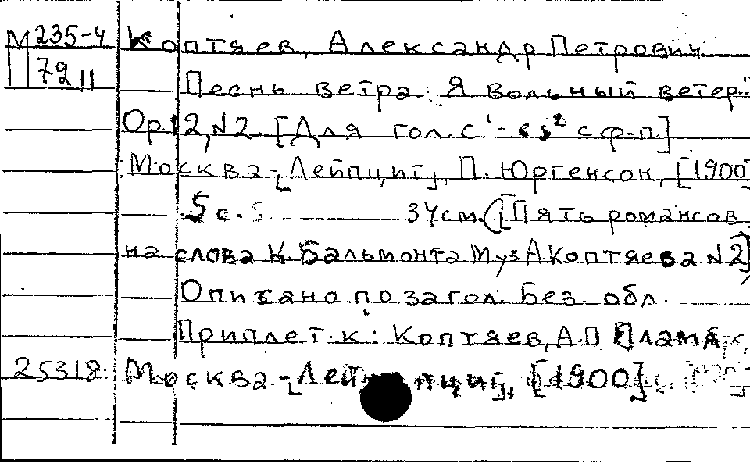 М 235-4 Коптяев, Александр Петрович
79 II Песнь ветра. Я вольный ветер..
Ор 12, N2. [Для гол. с¹-es² с ф-п]
Москва-[Лейпциг], П. Юргенсон, [1900]
5 с. 34 см. ([Пять романсов
на слова К. Бальмонта Муз А Коптяева N2]
Описано по загол. Без обл.
Приплет. к: Коптяев, А.П
25318 Москва-[Лейпциг], [1900].